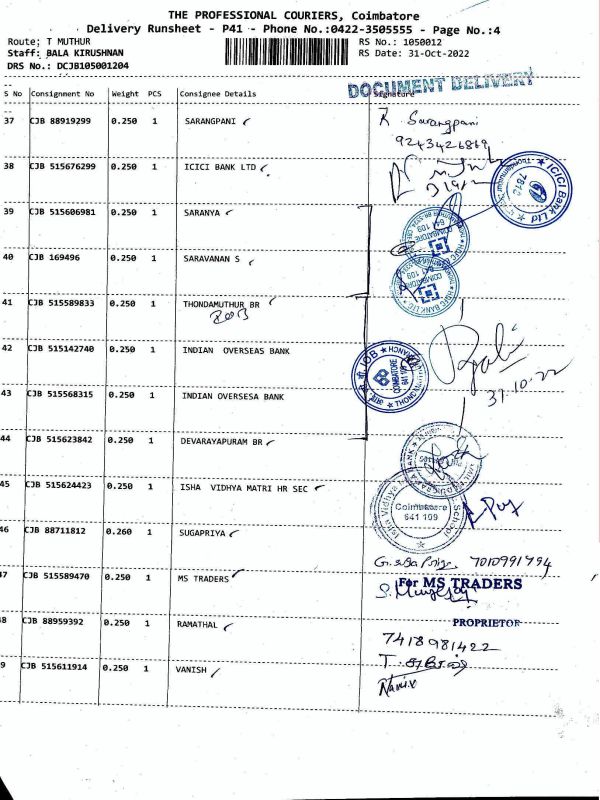 THE PROFESSIONAL COURIERS, Coimbatore
Delivery Runsheet - P41 - Phone No.:0422-3505555 - Page No.:4
Route: T MUTHUR
RS No.: 1050012
Staff: BALA KIRUSHNAN
RS Date: 31-Oct-2022
DRS No.: DCJB105001204
DOCUMENT DELIVERY
S No Consignment No Weight PCS Consignee Details Signature
37 CJB 88919299 0.250 1 SARANGPANI R Sarangpani
9243426869
38 CJB 515676299 0.250 1 ICICI BANK LTD
ICICI Bank Ltd
39 CJB 515606981 0.250 1 SARANYA
COIMBATORE
641 109
40 CJB 169496 0.250 1 SARAVANAN S
COIMBATORE
641 109
41 CJB 515589833 0.250 1 THONDAMUTHUR BR
42 CJB 515142740 0.250 1 INDIAN OVERSEAS BANK
IOB
COIMBATORE
641 109
31.10.22
43 CJB 515568315 0.250 1 INDIAN OVERSESA BANK
44 CJB 515623842 0.250 1 DEVARAYAPURAM BR
45 CJB 515624423 0.250 1 ISHA VIDHYA MATRI HR SEC
Coimbatore
641 109
46 CJB 88711812 0.260 1 SUGAPRIYA
7010991794
47 CJB 515589470 0.250 1 MS TRADERS
For MS TRADERS
PROPRIETOR
48 CJB 88959392 0.250 1 RAMATHAL
7418981422
49 CJB 515611914 0.250 1 VANISH